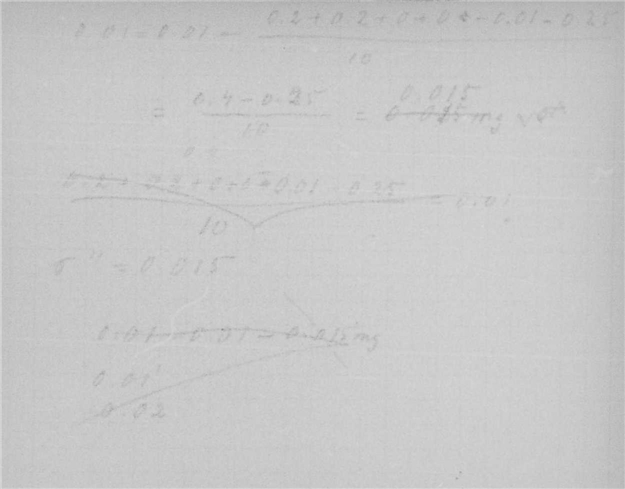 0.01 = 0.01 - 0.2 + 0.2 + 0 + 0 + - 0.01 - 0.25
10
= 0.4 - 0.25 = 0.015
10 0.025 mg
0.2 + 0.2 + 0 + 0 + 0.01 - 0.25 = 0.01
10
σ" = 0.015
0.01 - 0.01 - 0.015 mg
0.01
0.02